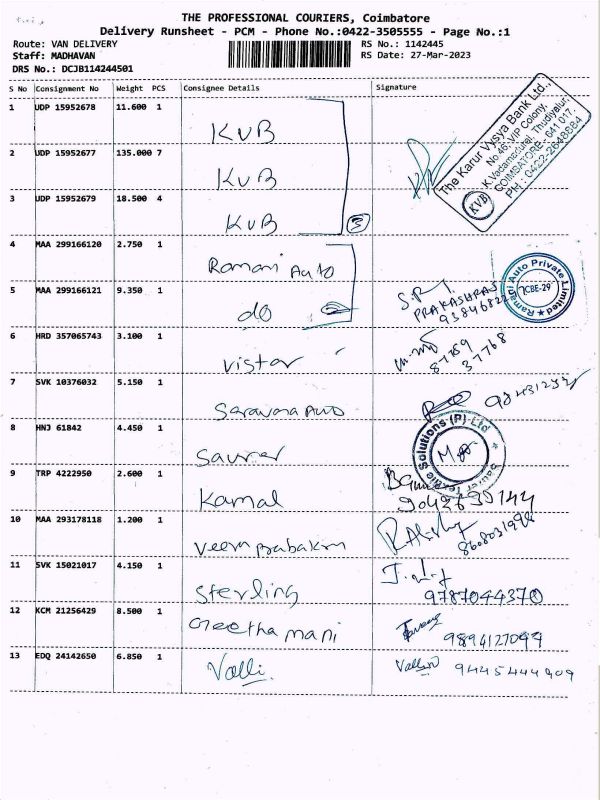 THE PROFESSIONAL COURIERS, Coimbatore
Delivery Runsheet - PCM - Phone No.:0422-3505555 - Page No.:1
Route: VAN DELIVERY
RS No.: 1142445
Staff: MADHAVAN
RS Date: 27-Mar-2023
DRS No.: DCJB114244501
S No Consignment No Weight PCS Consignee Details Signature
1 UDP 15952678 11.600 1
KVB
2 UDP 15952677 135.000 7
KVB
3 UDP 15952679 18.500 4
KVB 3
The Karur Vysya Bank Ltd.,
No.46, VIP Colony,
K.Vadamadurai, Thudiyalur,
COIMBATORE - 641 017.
PH : 0422-2648884
KVB
4 MAA 299166120 2.750 1
Ramani Auto
5 MAA 299166121 9.350 1
do 2
PRAKASHRAJ
Ramani Auto Private Limited
CBE-29
6 HRD 357065743 3.100 1
Vistar
87759
37768
7 SVK 10376032 5.150 1
Saravana Auto
8 HNJ 61842 4.450 1
Saurer
Saurer Textile Solutions (P) Ltd
9 TRP 4222950 2.600 1
Kamal
10 MAA 293178118 1.200 1
Veera prabakaran
11 SVK 15021017 4.150 1
Sterling
9787044370
12 KCM 21256429 8.500 1
Geethamani
9894127099
13 EDQ 24142650 6.850 1
Valli
9445444909